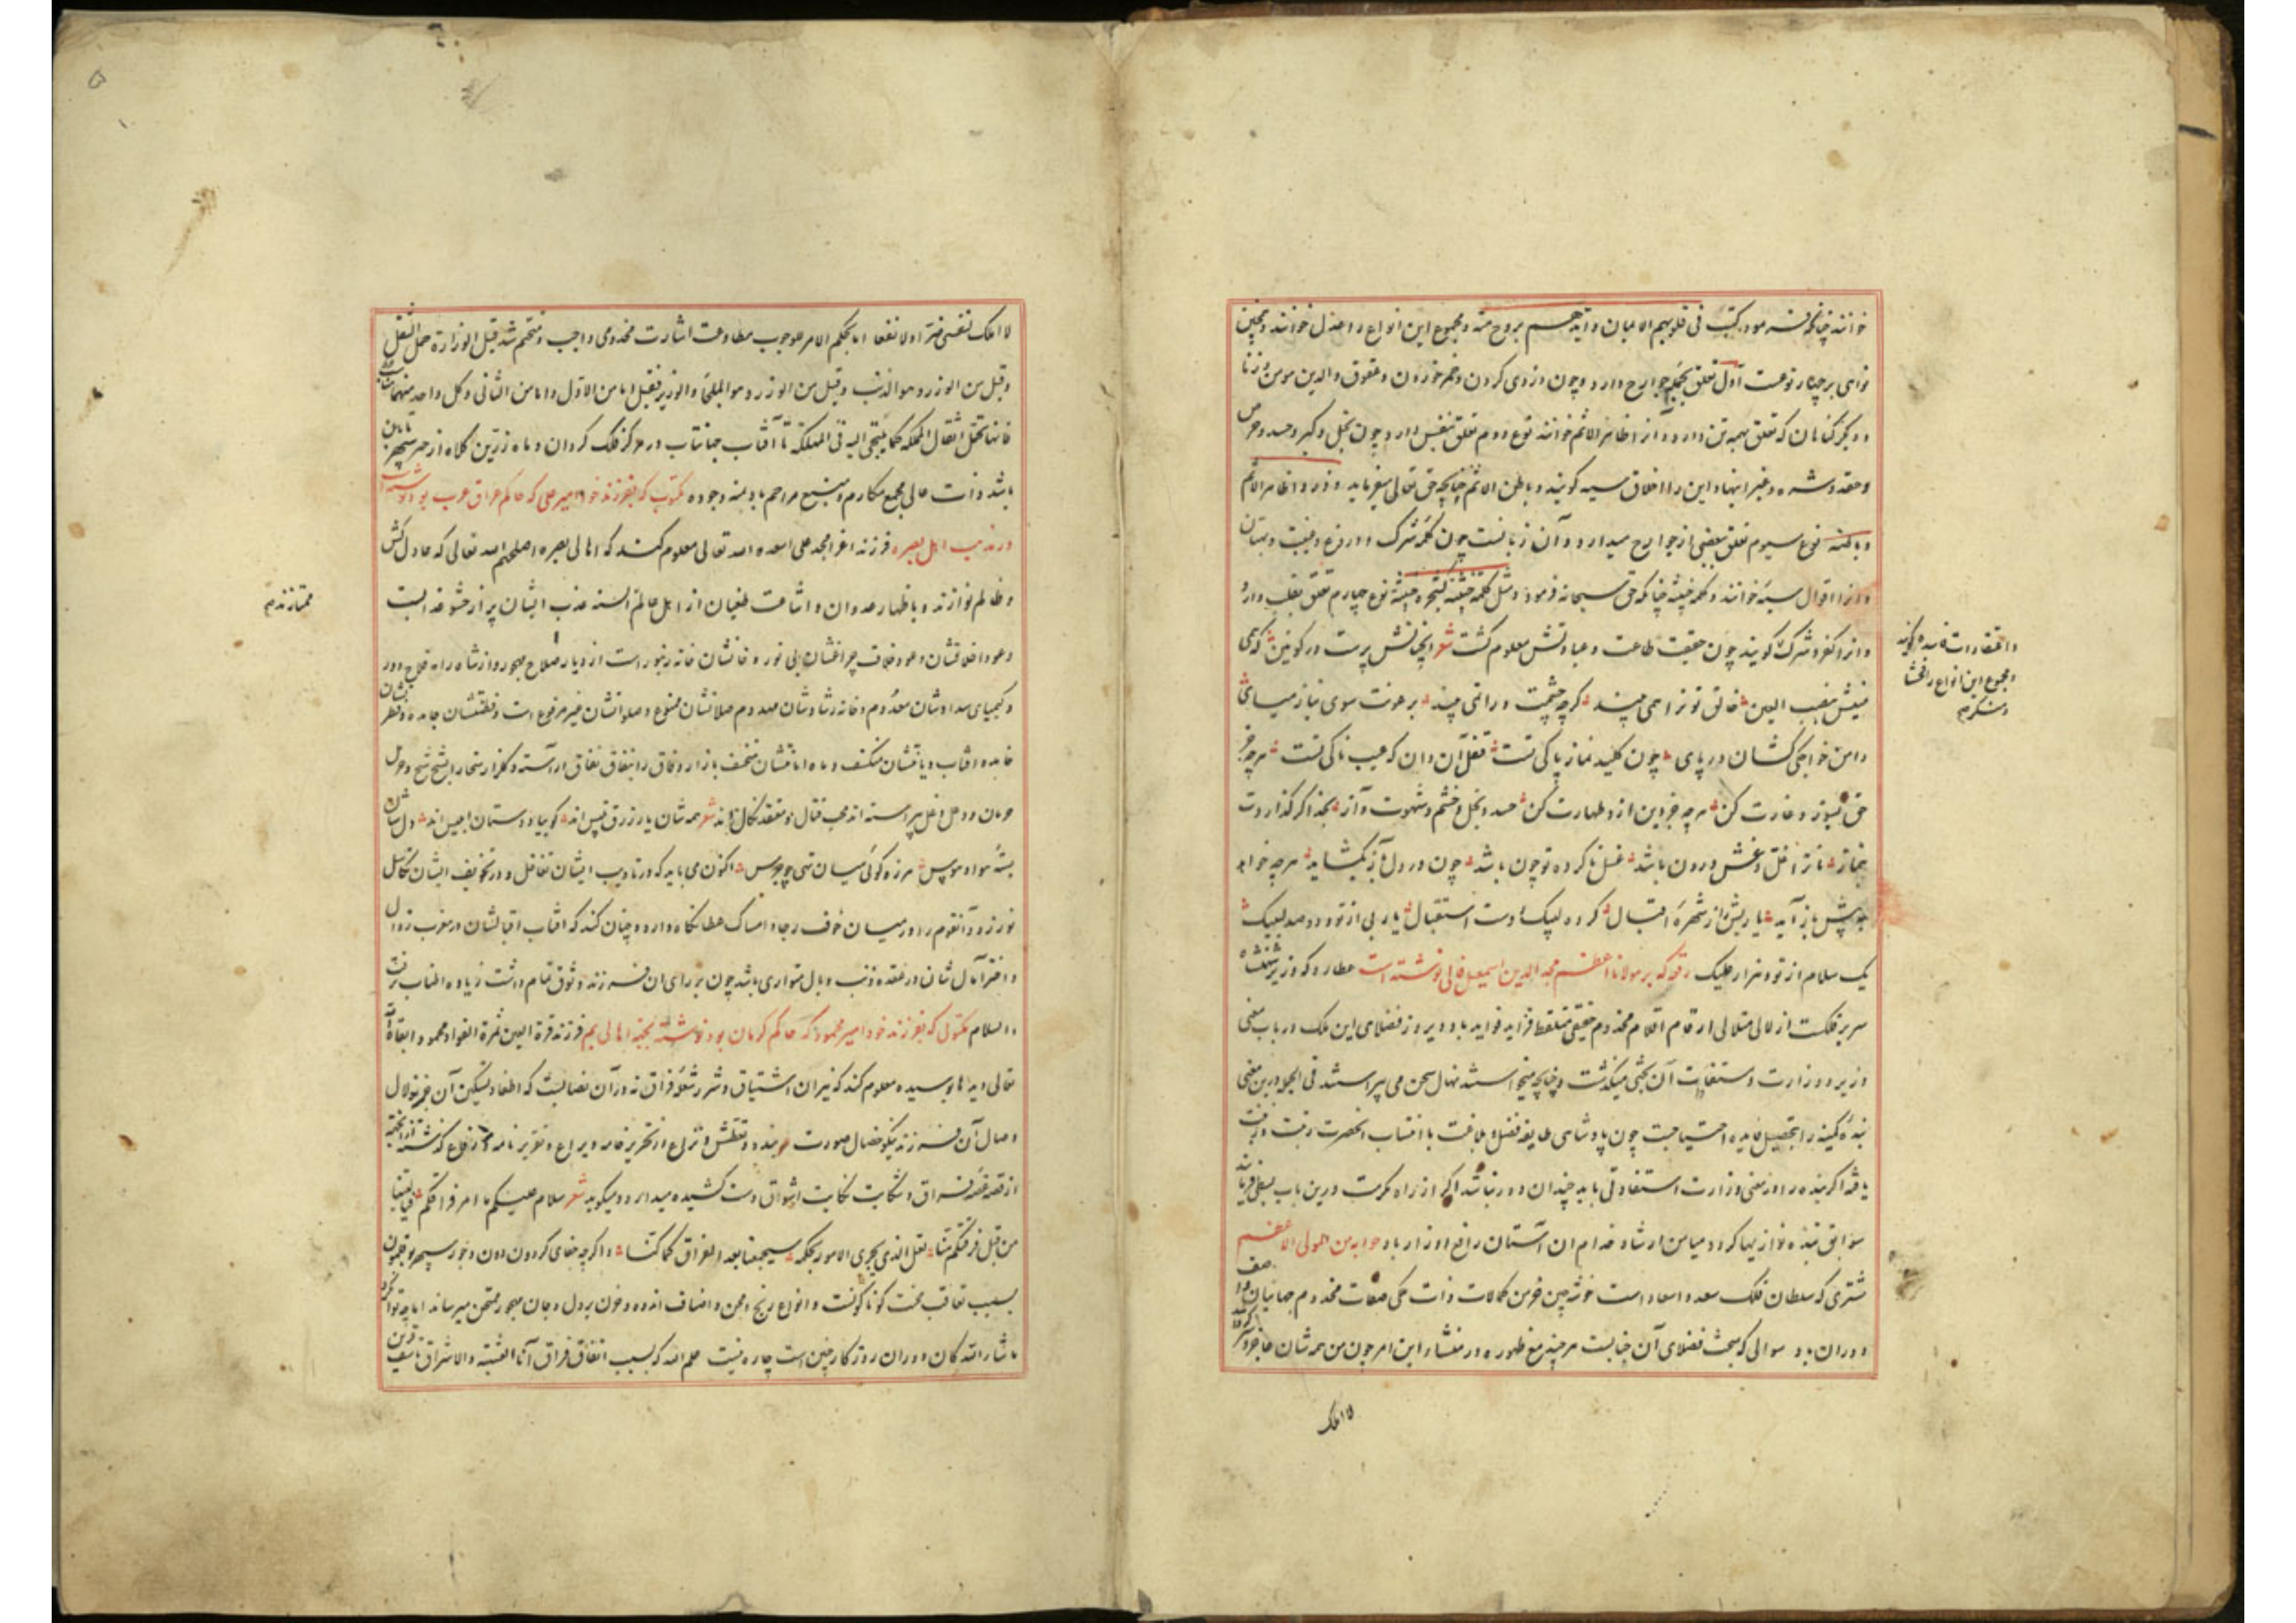 خوانند چنانکه فرموده کتب فی قلوبهم الایمان و ایدهم بروح منه و مجموع این انواع را عدل خوانند و همچنین
نواهی بر چهار نوعست اول تعلق بجمله جوارح دارد و چون دزدی کردن و خمر خوردن و عقوق والدین مومن و زنا
و دیگر گناهان که تعلق بهمه تن دارد و آنرا ظاهر الاثم خوانند نوع دوم تعلق بنفس دارد چون بخل و کبر و حسد و حرص
و حقد و شره و غیر اینها و این را اخلاق سیئه گویند و باطن الاثم چنانچه حق تعالی میفرماید و ذروا ظاهر الاثم
و باطنه نوع سیوم تعلق ببعضی از جوارح میدارد و آن زبانست چون کلمه شرک و دروغ و غیبت و بهتان
و آنرا اقوال سیئه خوانند و کلمه خبیثه چنانکه حق سبحانه فرموده و مثل کلمة خبیثة کشجرة خبیثة نوع چهارم تعلق بقلب دارد
و آنرا کفر و شرک گویند چون حقیقت طاعت و عبادتش معلوم گشت شعر آنچنانش پرست در کونین که همی
بینیش بعین العین خالق تو ترا همی بیند گرچه چشمت ورا نمی بیند برعونت سوی نماز میای
دامن خواجگی کشان در پای چون کلید نماز پاکی تست قفل آن دان که عیب ناکی تست هر چه جز
حق بسوز و غارت کن هر چه جز دین ازو طهارت کن حسد و بخل و خشم و شهوت و آز بخدا گر گذاردت
بنماز تا ترا غل و غش درون باشد غسل ناکرده تو چون باشد چون در دل نیاز بگشاید هر چه خواهد
به پیش باز آید یا ربش را ز شهره اقبال کرده لبیک دوست استقبال یا ربی از تو و دو صد لبیک
یک سلام از تو و هزار علیک رقعه که بر مولانا اعظم مجد الدین اسمعیل فالی نوشته است عطارد که وزیر شهنشاه
سریر فلکست از لالی متلالی ارقام اقلام مخدوم حقیقی ملتقط فراید فواید باد دیروز فضلای این ملک در باب معنی
وزیر و وزارت و مشتقات آن بحثی میگذشت و چنانچه میخواستند نهال سخن می پیراستند فی الجمله درین معنی
بنده کمینه را بتحصیل فایده احتیاجست چون پادشاهی طایفه فضل و بلاغت با انتساب آنحضرت رفعت و زینت
یافته اگر بنده را در معنی وزارت استفادتی باید چندان دور نباشد اگر از راه مکرمت درین باب بسطی فرماید
سوابق بنده نوازیها گردد میامن ارشاد خدام آن آستان رافع اوزار باد جوابه من المولی الاعظم
مشتری که سلطان فلک سعد و اسعاد است خوشه چین خرمن کمالات ذات ملکی صفات مخدوم جهانیان و آصف
دوران باد سوالی که مبحث فضلای آن جنابست هر چند مع ظهوره در منشاء این امر چون من همه شان عاجز و سر کرد
لا املک
و اعتقادات فاسده گویند
و مجموع این انواع را فحشا
و منکر هم
لا املک نفسی ضرا و لا نفعا اما بحکم الامر للوجوب مطاوعت اشارت مخدومی واجب و متحتم شد قیل الوزارة حمل الثقل
وقیل من الوزر و هو الذنب وقیل من الوزر و هو الملجأ والوزیر فعیل اما من الاول و اما من الثانی و کل واحد منهما مناسب
فانها تحمل اثقال المملکة کما یلتجی الیه فی المهلکة تا آفتاب جهانتاب در مرکز فلک گردان و ماه زرین کلاه از حد سپهر تابان
باشد ذات عالی مجمع مکارم و منبع مراحم باد بمنه وجوده مکتوب که بفرزند خود امیر علی که حاکم عراق عرب بود نوشته است
در تادیب اهل بصره فرزند اعز امجد علی اسعده الله تعالی معلوم کند که اهالی بصره اصلحهم الله تعالی که عادل کش
و ظالم نوازند و باظهار عدوان و اشاعت طغیان از اهل عالم السنه عذب ایشان پر از حشو غدا است
و عود اخلاقشان و عود خلاف چراغشان بی نور و خانشان خانه زنبور است از دیار صلاح مهجور و از شاه راه فلاح دور
و کیمیای سدادشان معدوم و خانه رشادشان مهدوم صلاتشان ممنوع و صلواتشان غیر مرفوع است و فطنتشان جامده و فطرتشان
خامده و آفتاب دیانتشان منکسف و ماه امانتشان منخسف بازار وفاق را بنفاق نفاق آراسته و گلزار سخا را بشح شح و خزان
حرمان و دخل و غل پیراسته اند محب قتال و معتقد نکال اند شعر همه شان یار زرق تلبیس اند گوییا دوستان ابلیس اند دل شان
بسته هوا و هوس هرزه گوی میان تهی چو جرس اکنون می باید که در تادیب ایشان تغافل و در تخویف ایشان تکاسل
نورزد و آنقوم را در میان خوف و رجا و امساک عطا نگاه دارد و چنان کند که آفتاب اقبالشان در مغرب زوال
و اختر آمال شان در عقده ذنب و بال متواری باشد چون بر رای آن فرزند وثوق تمام داشت زیاده اطناب نرفت
والسلام مکتوبی که بفرزند خود امیر محمود که حاکم کرمان بود نوشته بجهت اهالی بم فرزند قرة العین ثمرة الفواد محمود ابقاه الله
تعالی دیدها بوسیده معلوم کند که نیران اشتیاق و شرر شعله فراق نه در آن نصابست که اطفا و تسکین آن جز بزلال
وصال آن فرزند نیکو خصال صورت بندد و تعطش و نزاع از تحریر خامه و یراع و تقریر نامه
از قصه غصه فراق و شکایت نکایت اشواق دست کشیده میدارد و میگوید شعر سلام علیکم ما امر فراقکم فیالیتنا
من قبل فرقتکم متنا لعل الذی یجری الامور بحکمه سیجمعنا بعد الفراق کما کنا و اگرچه جفای گردون دون و جور سپهر بوقلمون
بسبب تعاقب محنت گوناگونست و انواع رنج و محن و اصناف اندوه و حزن بر دل و جان مهجور ممتحن میرساند اما چه توان کرد
ما شاء الله کان دوران روزگار چنین است چاره نیست علم الله که بسبب اتفاق فراق آنا العشیة والاشراق